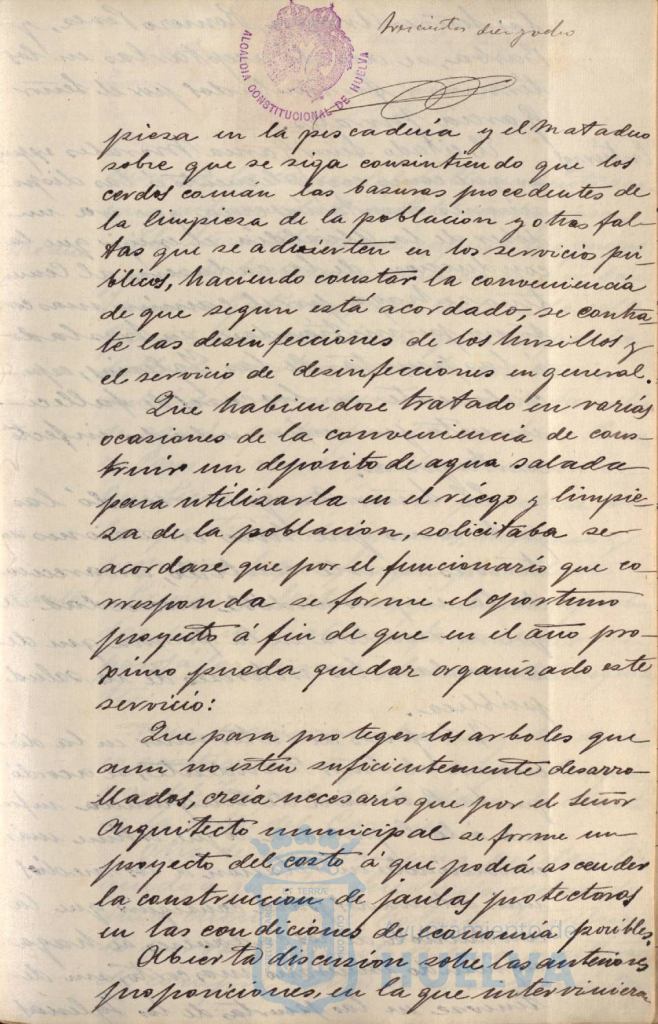 trescientos diez y ocho
ALCALDIA CONSTITUCIONAL DE HUELVA
pieza en la pescadería y el Matadero
sobre que se siga consintiendo que los
cerdos coman las basuras procedentes de
la limpieza de la poblacion y otras fal-
tas que se advierten en los servicios pú-
blicos, haciendo constar la conveniencia
de que segun está acordado, se contra-
te las desinfecciones de los husillos y
el servicio de desinfecciones en general.
Que habiendose tratado en varias
ocasiones de la conveniencia de cons-
truir un depósito de agua salada
para utilizarla en el riego y limpie-
za de la poblacion, solicitaba se
acordase que por el funcionario que co-
rresponda se forme el oportuno
proyecto á fin de que en el año pró-
ximo pueda quedar organizado este
servicio:
Que para proteger los arboles que
aun no esten suficientemente desarro-
llados, creia necesario que por el Señor
Arquitecto municipal se forme un
proyecto del costo á que podrá ascender
la construccion de jaulas protectoras
en las condiciones de economia posibles.
Abierta discusion sobre las anteriores
proposiciones, en la que interviniera
Ayuntamiento de
HUELVA